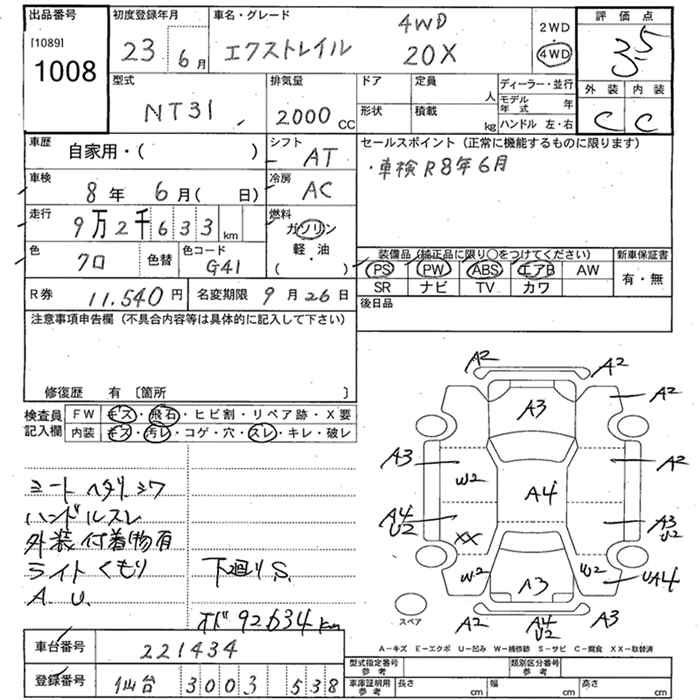 出品番号
[1089]
1008
初度登録年月
23 6月
車名・グレード
エクストレイル
4WD
20X
2WD
・
4WD
評価点
3.5
外装 内装
C C
型式
NT31
排気量
2000 cc
ドア
形状
定員
人
積載
kg
ディーラー・並行
モデル年式 年
ハンドル 左・右
車歴
自家用・( )
シフト
AT
セールスポイント(正常に機能するものに限ります)
・車検R8年6月
車検
8年 6月( 日)
冷房
AC
走行
9万2千633km
燃料
ガソリン
軽・油
( )
色
クロ
色替
色コード
G41
装備品(純正品に限り○をつけてください)
PS PW ABS エアB AW
SR ナビ TV カワ
新車保証書
有・無
後日品
R券
11.540円
名変期限 9月26日
注意事項申告欄(不具合内容等は具体的に記入して下さい)
修復歴 有 [箇所 ]
検査員記入欄
FW キズ・飛石・ヒビ割・リペア跡・X要
内装 キズ・汚レ・コゲ・穴・スレ・キレ・破レ
シートヘタリシワ
ハンドルスレ
外装付着物有
ライトくもり
A.U.
下廻りS.
オド92634km
A2 A2
A3
A2
A3 W2 A2
A4
A4
U2
XX
A3
U2
W2 W2
A3
UA4
A2 A4
U2
A3
スペア
A-キズ E-エクボ U-凹み W-補修跡 S-サビ C-腐食 XX-取替済
車台番号
221434
登録番号
仙台 3003 538
型式指定番号
参考
類別区分番号
参考
車庫証明用
参考
長さ cm
幅 cm
高さ cm